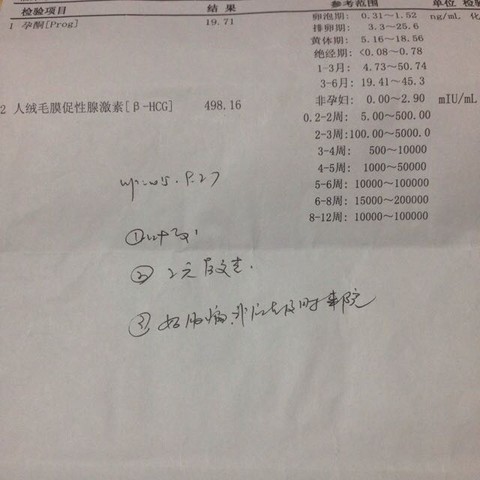 检验项目 结果 参考范围 单位
1 孕酮[Prog] 19.71 卵泡期: 0.31~1.52 ng/mL 化
排卵期: 3.3~25.6
黄体期: 5.16~18.56
绝经期: <0.08~0.78
1-3月: 4.73~50.74
3-6月: 19.41~45.3
2 人绒毛膜促性腺激素[β-HCG] 498.16 非孕妇: 0.00~2.90 mIU/mL
0.2-2周: 5.00~500.00
2-3周:100.00~5000.0
3-4周: 500~10000
4-5周: 1000~50000
5-6周: 10000~100000
6-8周: 15000~200000
8-12周: 10000~100000
①
②
③ 如腹痛